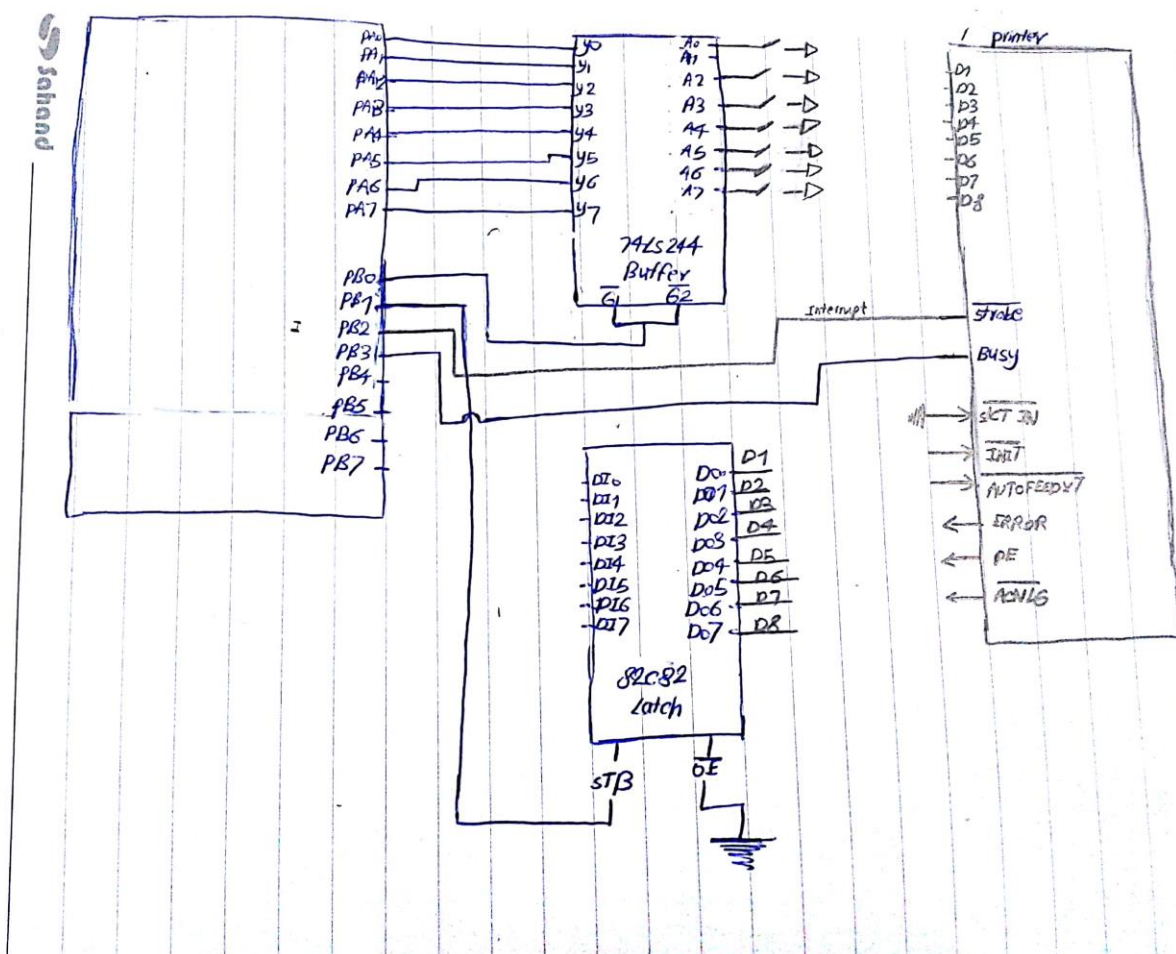 Sahand
PA0
PA1
PA2
PA3
PA4
PA5
PA6
PA7
PB0
PB1
PB2
PB3
PB4
PB5
PB6
PB7
y0
y1
y2
y3
y4
y5
y6
y7
A0
A1
A2
A3
A4
A5
A6
A7
74LS244
Buffer
G
G2
Interrupt
printer
D1
D2
D3
D4
D5
D6
D7
D8
Strobe
Busy
SLCT IN
INIT
AUTOFEEDXT
ERROR
PE
DI0
DI1
DI2
DI3
DI4
DI5
DI6
DI7
DO0
DO1
DO2
DO3
DO4
DO5
DO6
DO7
D1
D2
D3
D4
D5
D6
D7
D8
82C82
Latch
STB
OE